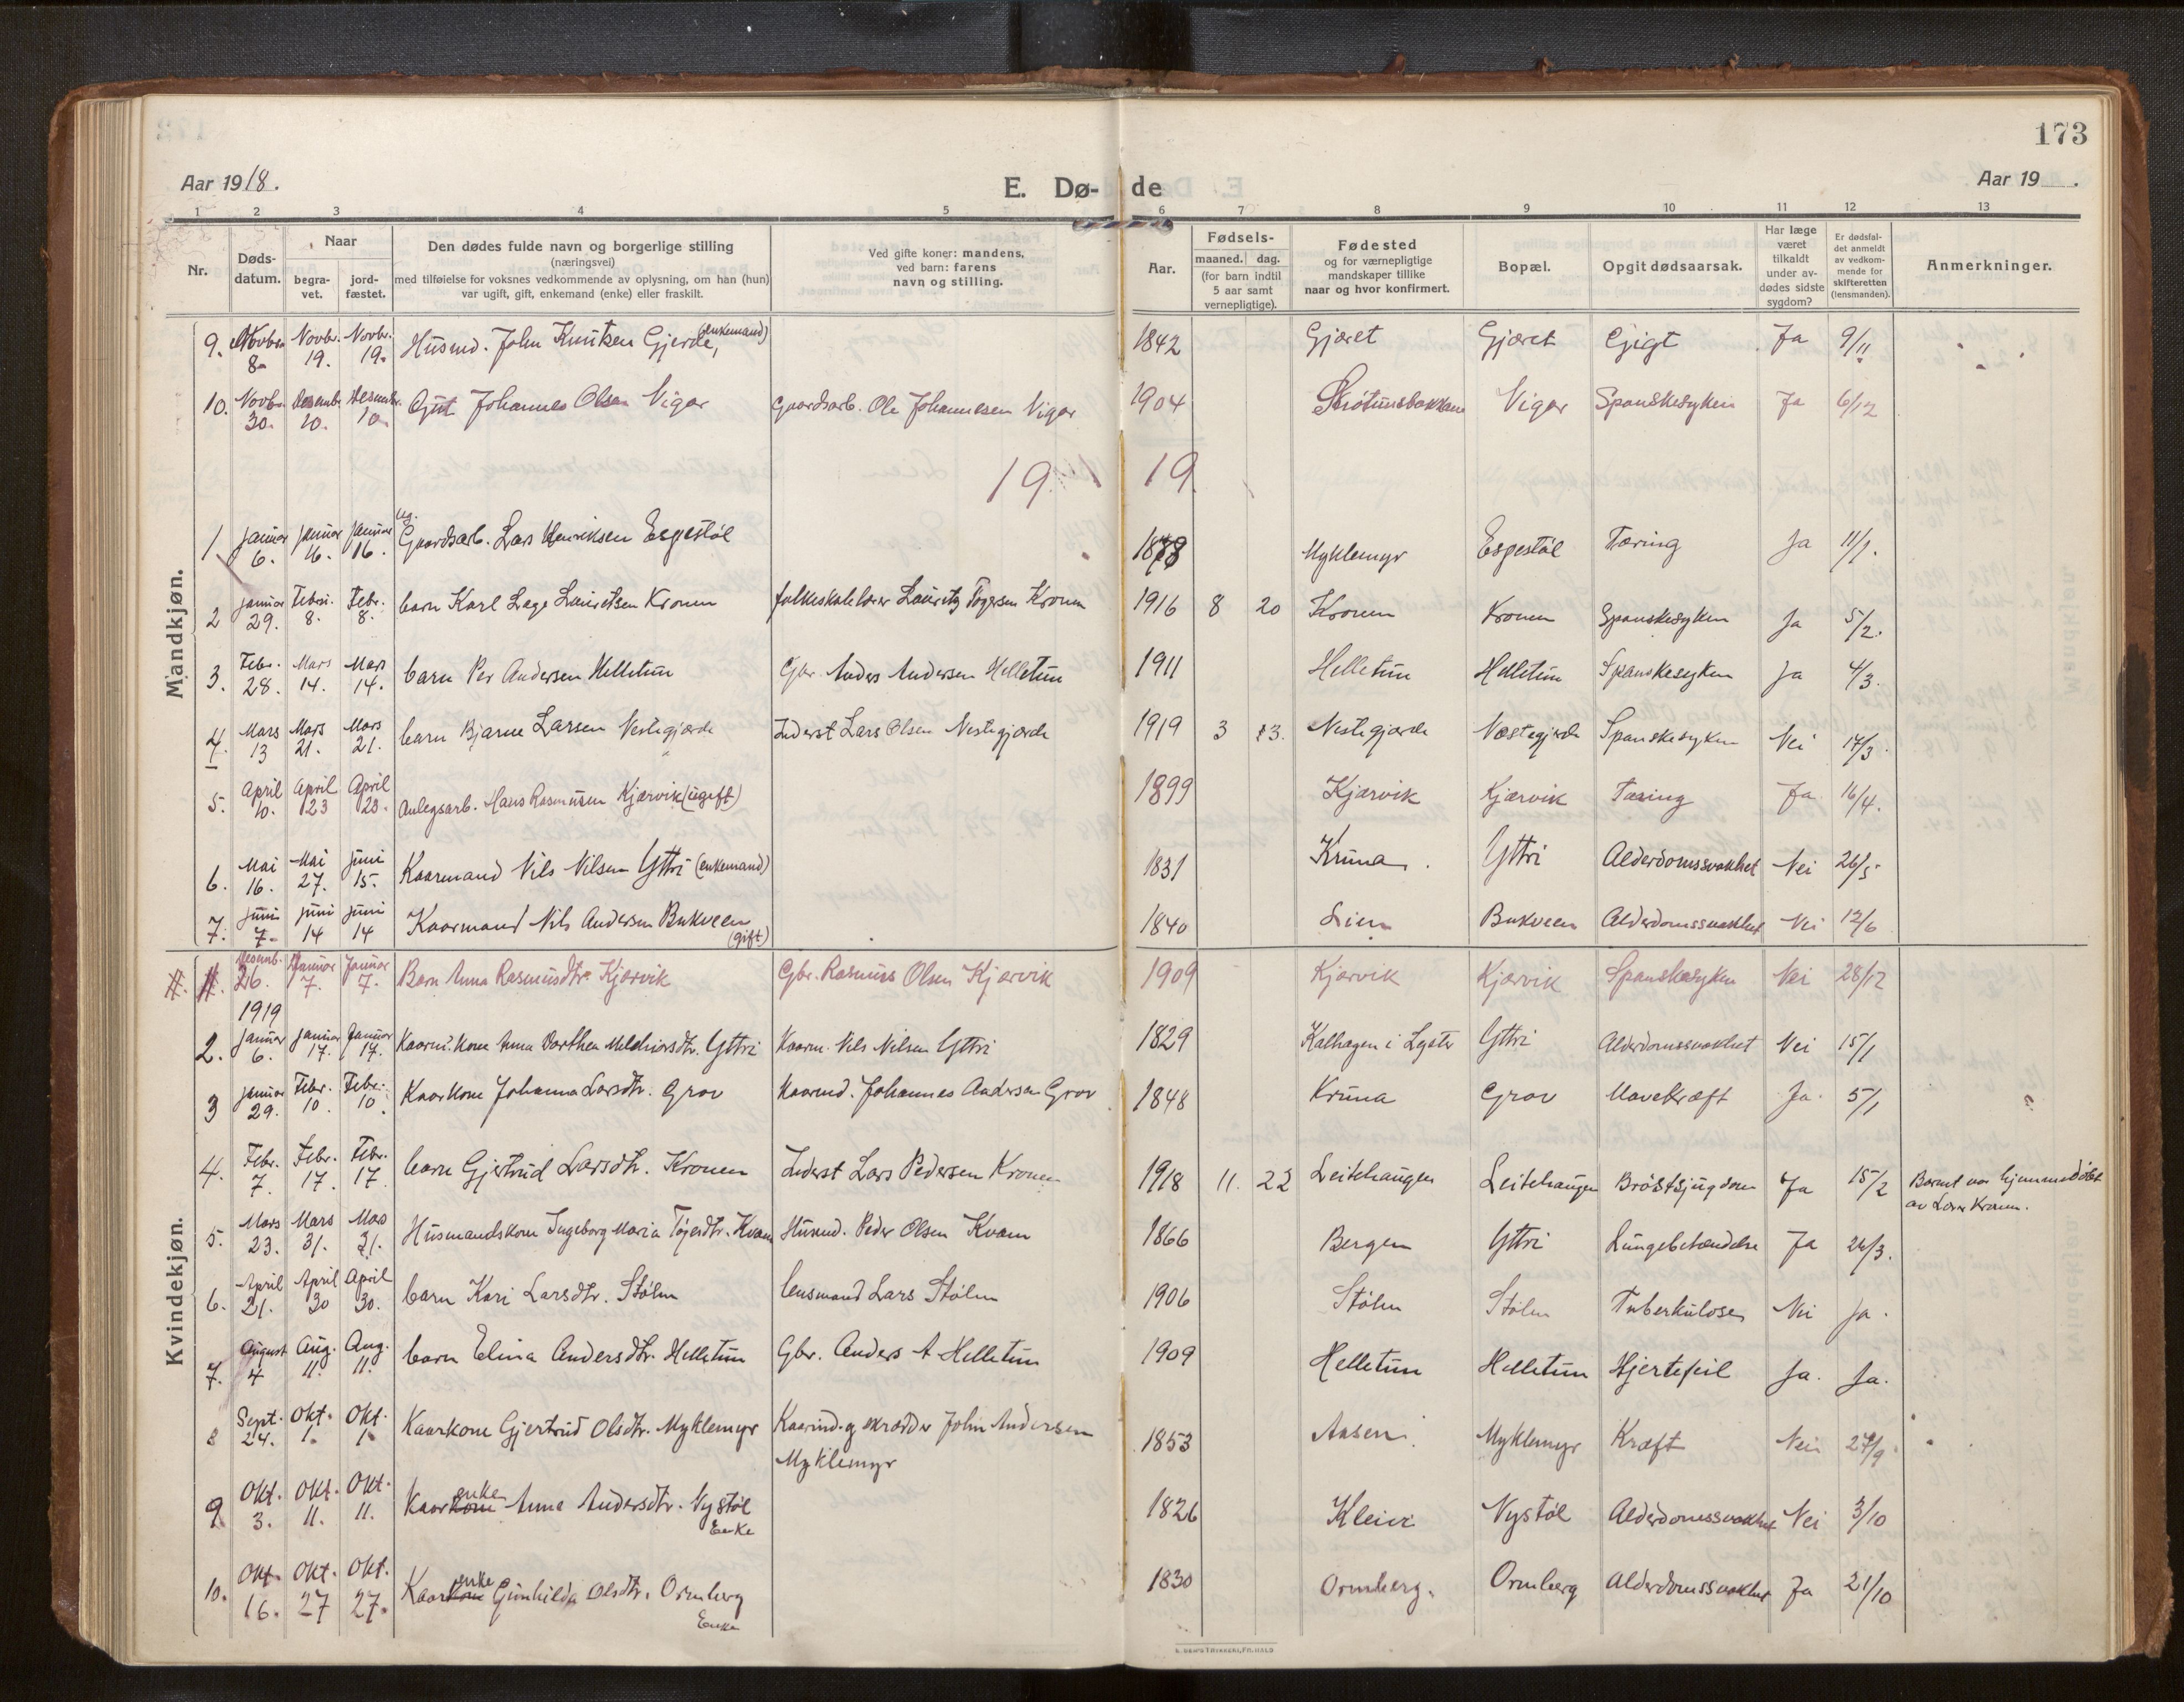 173
Aar 1918.
E. Dø-
de
Aar 19 .
1 2 3 4 5 6 7 8 9 10 11 12 13
Nr.
Døds-
datum.
Naar
begra-
vet.
jord-
fæstet.
Den dødes fulde navn og borgerlige stilling
(næringsvei)
med tilføielse for voksnes vedkommende av oplysning, om han (hun)
var ugift, gift, enkemand (enke) eller fraskilt.
Ved gifte koner: mandens,
ved barn: farens
navn og stilling.
Aar.
Fødsels-
maaned. dag.
(for barn indtil
5 aar samt
vernepligtige).
Fødested
og for værnepligtige
mandskaper tillike
naar og hvor konfirmert.
Bopæl.
Opgit dødsaarsak.
Har læge
været
tilkaldt
under av-
dødes sidste
sygdom?
Er dødsfal-
det anmeldt
av vedkom-
mende for
skifteretten
(lensmanden).
Anmerkninger.
Mandkjøn.
9. Novbr. 8. Novbr. 19. Novbr. 19. Husmd. John Knutsen Gjerde, (enkemand) 1842 Gjæret Gjæret Gigt Ja 9/11
10. Novbr. 30. Desembr. 10. Desembr. 10. Gut Johannes Olsen Vigar Gaardsarb. Ole Johannesen Vigar 1904 Vigar Spanskesyken Ja 6/12
19 19.
1 Januar 6. Januar 16. Januar 16. ug. Gaardsarb. Lars Henriksen Espestøl 1878 Myklemyr Espestøl Tæring Ja 11/1.
2 Januar 29. Febru. 8. Febr. 8. barn Karl Lage Lauritsen Kronen folkeskolelærer Lauritz Togersen Kronen 1916 8 20 Kronen Kronen Spanskesyken Ja 5/2.
3. Febr. 28. Mars 14. Mars 14. barn Per Andersen Helletun Gbr. Anders Andersen Helletun 1911 Helletun Helletun Spanskesyken Ja 4/3.
4. Mars 13 Mars 21. Mars 21. barn Bjarne Larsen Nestegjærde Inderst Lars Olsen Nestegjærde 1919 3 13. Nestegjærde Næstegjærde Spanskesyken Nei 17/3.
5. April 10. April 23 April 23. Anlegsarb. Hans Rasmusen Kjærvik (ugift) 1899 Kjærvik Kjærvik Tæring Ja 16/4.
6. Mai 16. Mai 27. Juni 15. Kaarmand Nils Nilsen Yttri (enkemand) 1831 Kruna Yttri Alderdomssvakhet Nei 26/5
7. Juni 7. Juni 14 Juni 14 Kaarmand Nils Andersen Bukveen (gift) 1840 Lien Bukveen Alderdomssvakhet Nei 12/6
Kvindekjøn.
Desemb. 26. Januar 7. Januar 7. Barn Anna Rasmusdtr. Kjærvik Gbr. Rasmus Olsen Kjærvik 1909 Kjærvik Kjærvik Spanskesyken Nei 28/12
1919
2. Januar 6. Januar 17. Januar 17. Kaarm. kone Anna Dorthea Melchiorsdtr. Yttri Kaarm. Nils Nilsen Yttri 1829 Kalhagen i Lyster Yttri Alderdomssvakhet Nei 15/1
3 Januar 29. Febr. 10. Febr. 10. Kaarkone Johanna Larsdtr. Grov Kaarmd. Johannes Andersen Grov 1848 Kruna Grov Mavekræft Ja. 5/1
4. Febr. 7. Febr. 17. Febr. 17. barn Gjertrud Larsdtr. Kronen Inderst Lars Pedersen Kronen 1918 11. 22 Leitehaugen Leitehaugen Brøstsjugdom Ja 15/2 Barnet var hjemmedøbt
av Lærer Kronen.
5. Mars 23. Mars 31. Mars 31. Husmandskone Ingeborg Maria Tøgerdtr. Kvam Husmd. Peder Olsen Kvam 1866 Bergen Yttri Lungebetændelse Ja 26/3.
6. April 21. April 30 April 30. barn Kari Larsdtr. Stølen lensmand Lars Stølen 1906 Stølen Stølen Tuberkulose Nei Ja.
7. August 4 Aug. 11. Aug. 11. barn Elina Andersdtr. Helletun Gbr. Anders A Helletun 1909 Helletun Helletun Hjertefeil Ja. Ja.
8 Sept. 24. Okt. 1. Okt. 1. Kaarkone Gjertrud Olsdtr. Myklemyr Kaarmd. og skrædder John Andersen
Myklemyr 1853 Aasen Myklemyr Kræft Nei 27/9
9. Okt. 3. Okt. 11. Okt. 11. Kaarkone enke Anna Andersdtr. Nystøl Enke 1826 Kleiv Nystøl Alderdomssvakhet Nei 3/10
10. Okt. 16. Okt. 27 Okt. 27. Kaarkone enke Gunhilda Olsdtr. Ormberg Enke 1830 Ormberg. Ormberg Alderdomssvakhet Ja 21/10